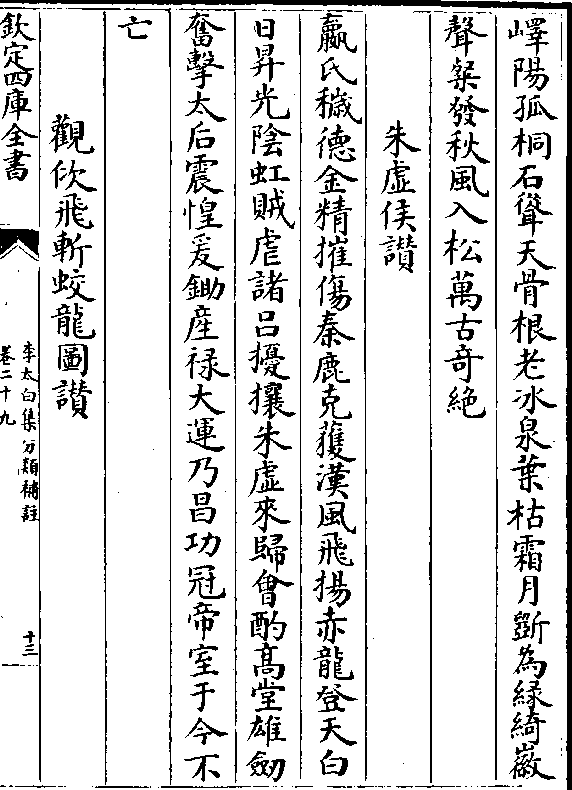 嶧陽孤桐石聳天骨根老冰泉葉枯霜月斵為緑綺徽
聲粲發秋風入松萬古奇絶
朱虚侯讃
嬴氏穢德金精摧傷秦鹿克獲漢風飛揚赤龍登天白
日昇光陰虹賊虐諸吕擾攘朱虚來歸會酌髙堂雄劒
奮擊太后震惶爰鋤産禄大運乃昌功冠帝室于今不
亡
觀佽飛斬蛟龍圖讃
欽定四庫全書
李太白集分類補註
卷二十九
十三